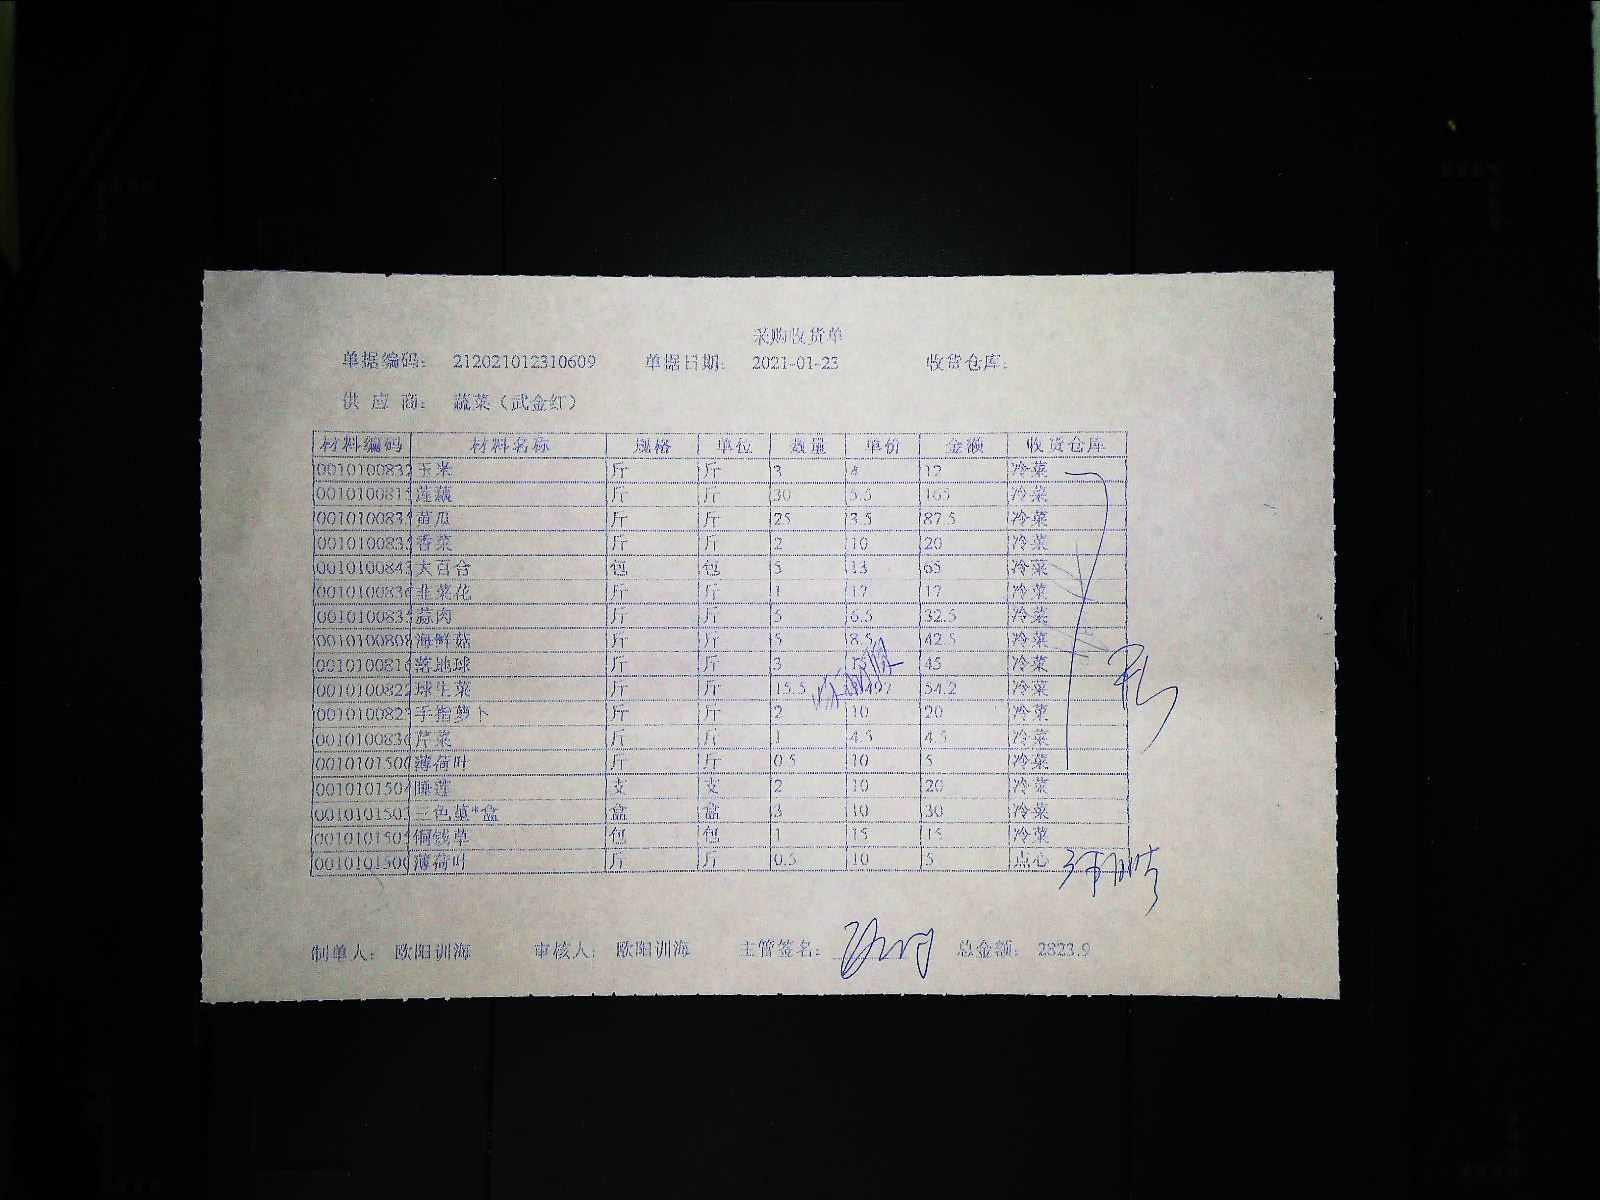 采购收货单
单据编码： 212021012310609 单据日期： 2021-01-23 收货仓库：
供 应 商： 蔬菜（武金红）
材料编码 材料名称 规格 单位 数量 单价 金额 收货仓库
0010100832 玉米 斤 斤 3 4 12 冷菜
001010081 莲藕 斤 斤 30 5.5 165 冷菜
001010083 苗瓜 斤 斤 25 3.5 87.5 冷菜
001010083 香菜 斤 斤 2 10 20 冷菜
001010084 大百合 包 包 5 13 65 冷菜
001010083 韭菜花 斤 斤 1 17 17 冷菜
001010083 蒜肉 斤 斤 5 6.5 32.5 冷菜
001010080 海鲜菇 斤 斤 5 8.5 42.5 冷菜
001010081 落地球 斤 斤 3 45 冷菜
0010100822 球生菜 斤 斤 15.5 54.2 冷菜
001010082 手指萝卜 斤 斤 2 10 20 冷菜
001010083 芹菜 斤 斤 1 4.5 4.5 冷菜
001010150 薄荷叶 斤 斤 0.5 10 5 冷菜
001010150 睡莲 支 支 2 10 20 冷菜
001010150 三色堇*盒 盒 盒 3 10 30 冷菜
001010150 铜钱草 包 包 1 15 15 冷菜
001010150 薄荷叶 斤 斤 0.5 10 5 点心
制单人： 欧阳训海 审核人： 欧阳训海 主管签名： 总金额： 2823.9